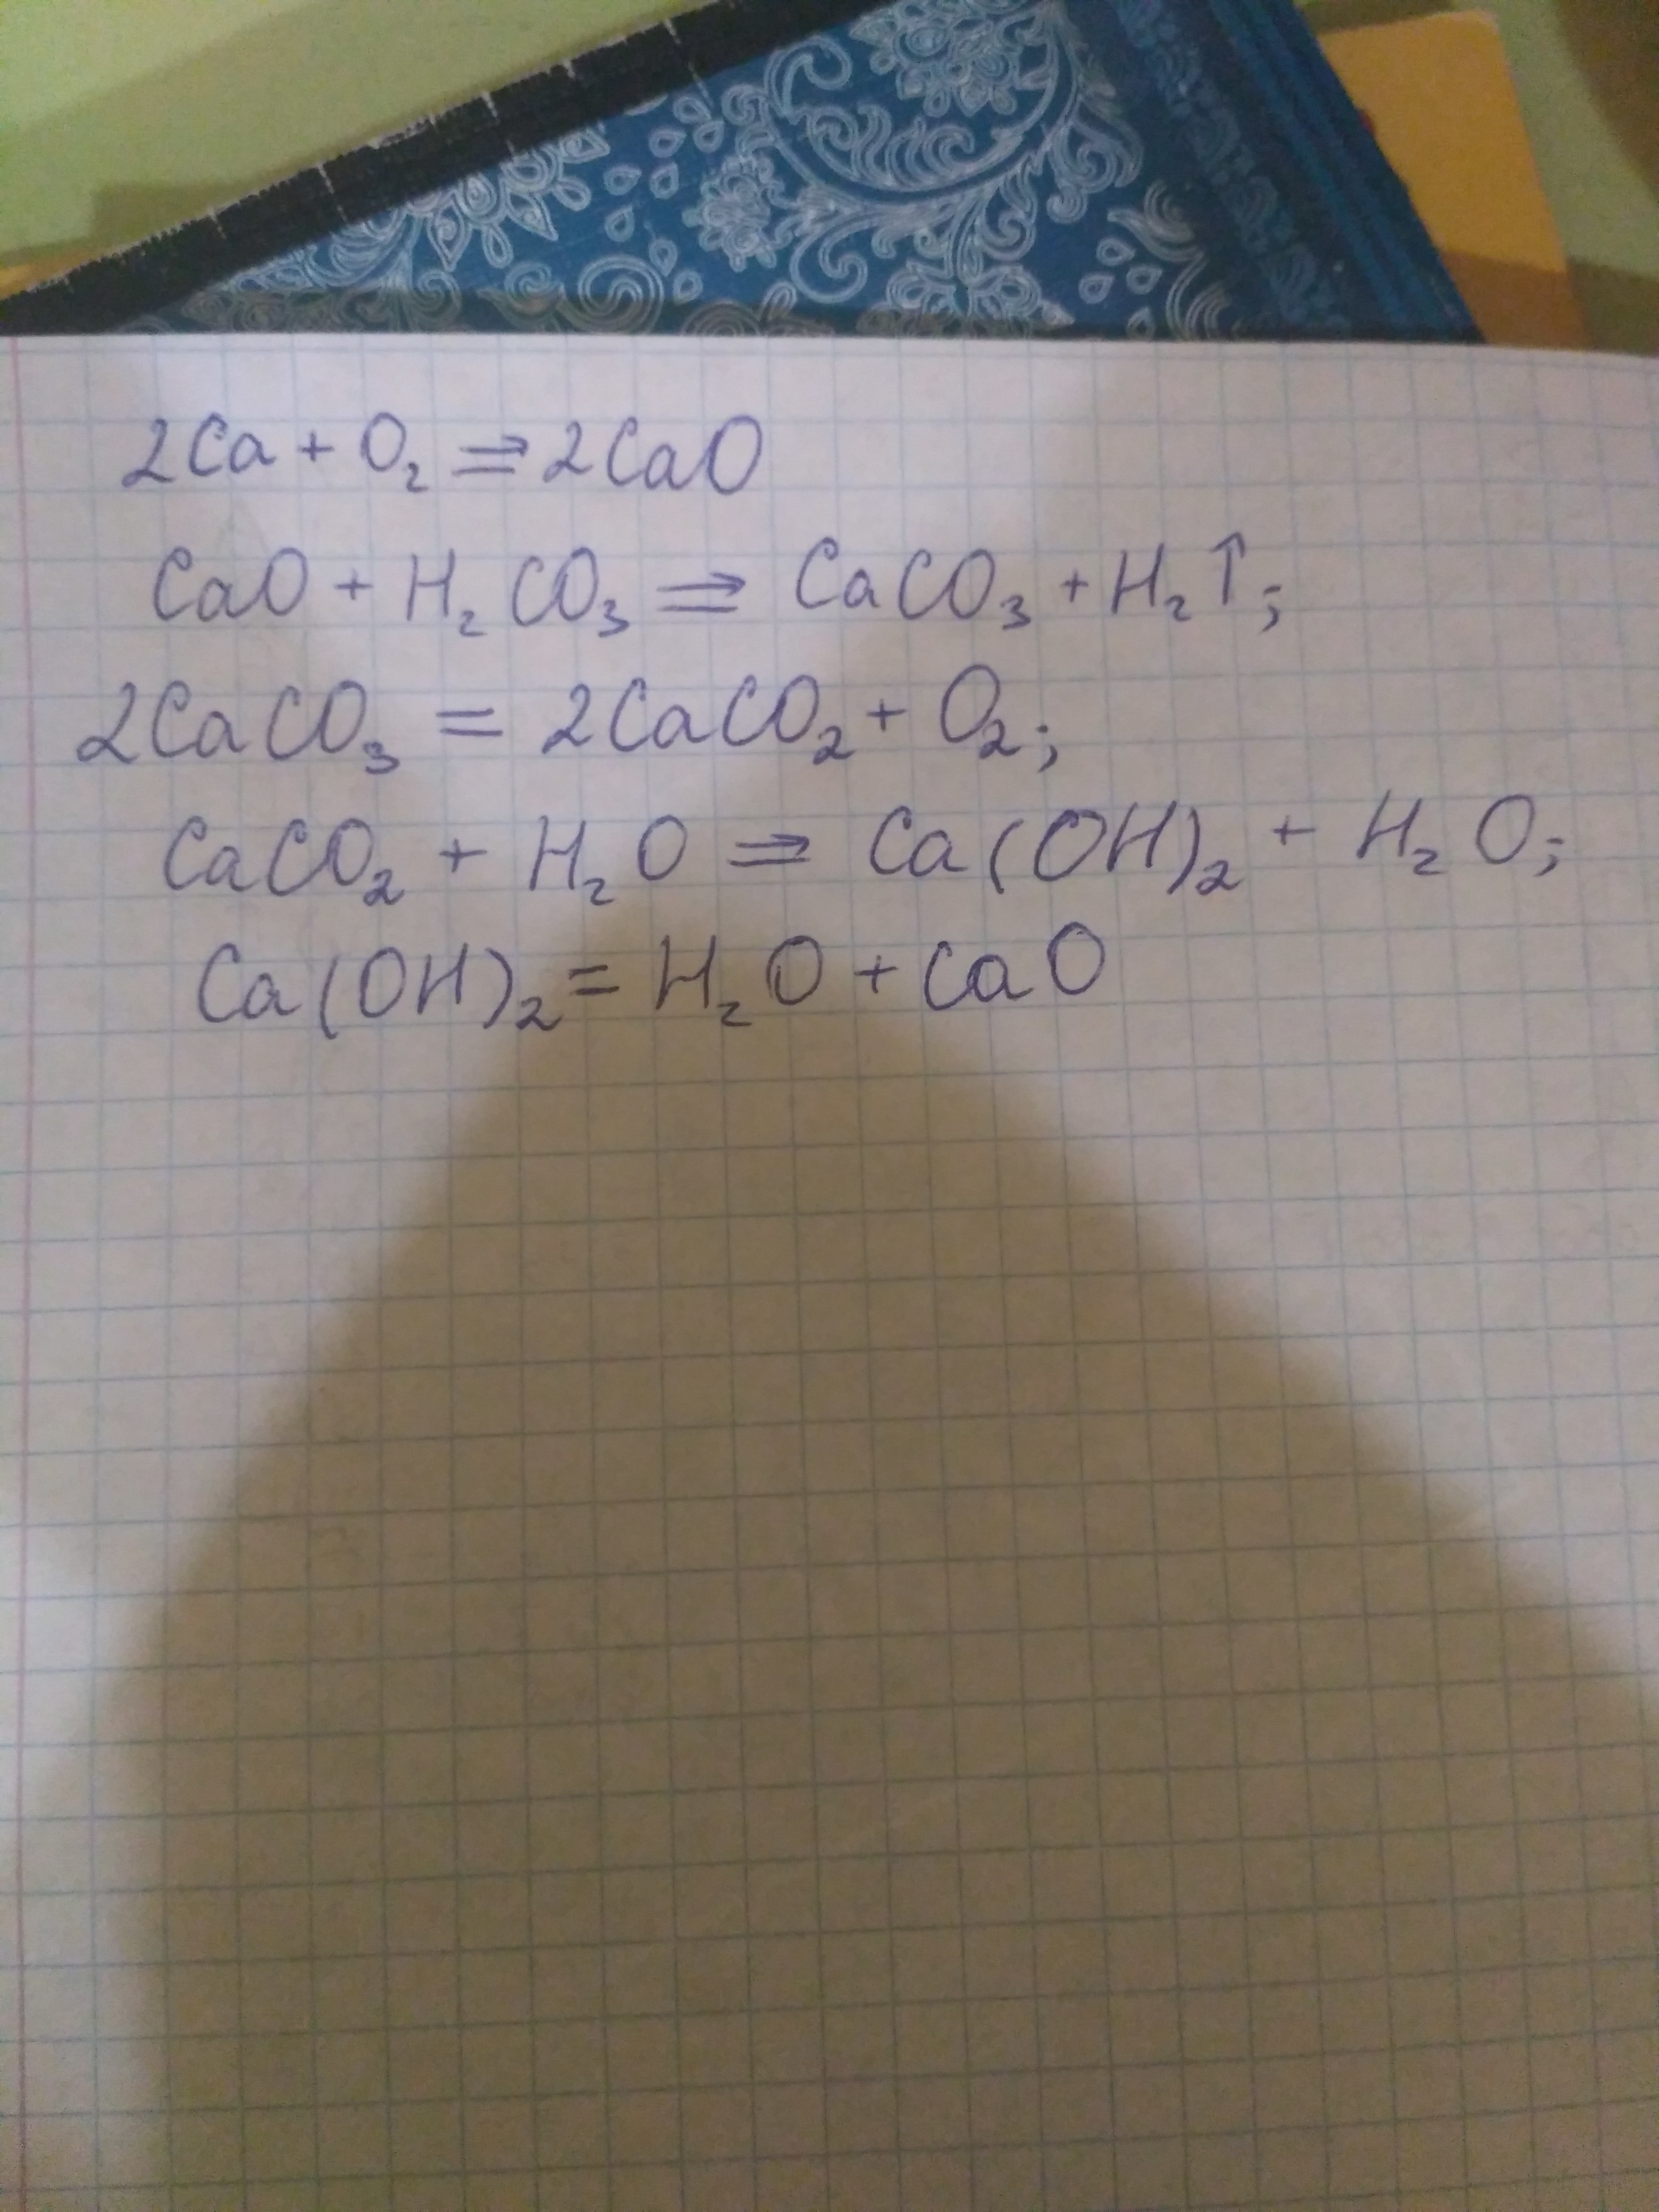 2Ca + O₂ ⇒ 2CaO
CaO + H₂CO₃ ⇒ CaCO₃ + H₂↑;
2CaCO₃ = 2CaCO₂ + O₂;
CaCO₂ + H₂O ⇒ Ca(OH)₂ + H₂O;
Ca(OH)₂ = H₂O + CaO